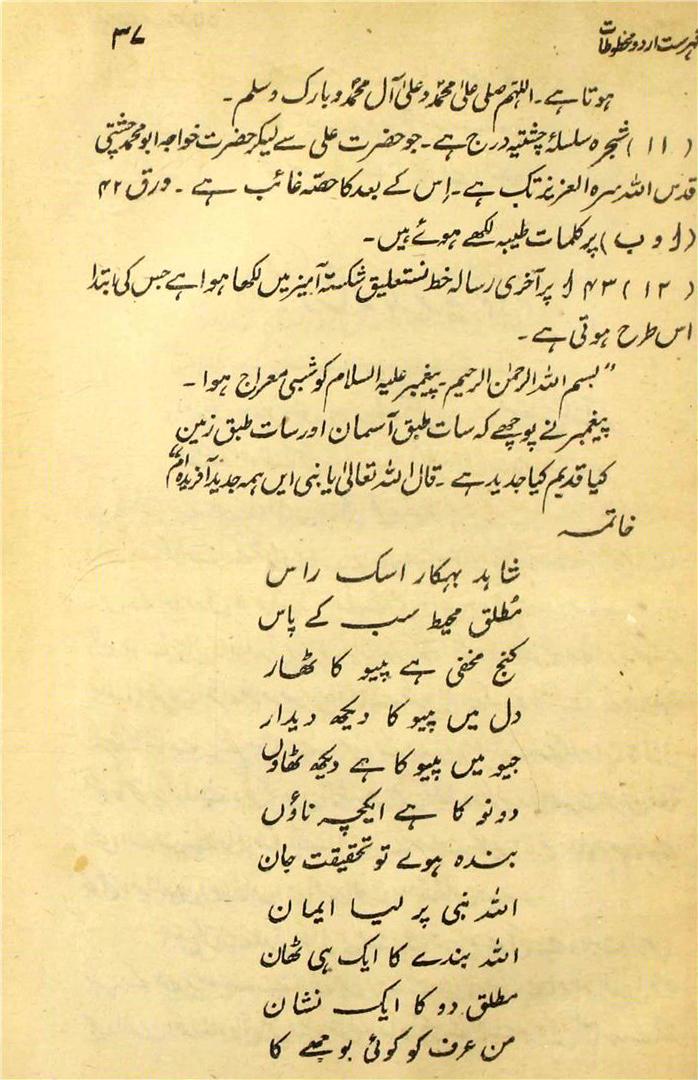 فہرست اردو مخطوطات
۳۷
ہوتا ہے۔ اللہم صلی علیٰ محمدؐ و علیٰ آل محمدؐ و بارک وسلم۔
( ۱۱ ) شجرہ سلسلۂ چشتیہ درج ہے۔ جو حضرت علی سے لیکر حضرت خواجہ ابو محمد چشتی
قدس اللہ سرہ العزیز تک ہے۔ اِس کے بعد کا حصّہ غائب ہے ۔ ورق ۴۲
(ا و ب ) پر کلمات طیبہ لکھے ہوئے ہیں۔
( ۱۲ ) ۴۳ ا پر آخری رسالہ خط نستعلیق شکستہ آمیز میں لکھا ہوا ہے جس کی ابتدا
اس طرح ہوتی ہے۔
”بسم اللہ الرحمٰن الرحیم۔ پیغمبر علیہ السلام کو شبی معراج ہوا ۔
پیغمبر نے پوچھے کہ سات طبق آسمان اور سات طبق زمین
کیا قدیم کیا جدید ہے ۔ قال اللہ تعالیٰ یا نبی ایں ہمہ جدید آفریدہ ام“
خاتمہ
شاہد بہکار اسک راس
مُطلق محیط سب کے پاس
کنج مخفی ہے پیو کا ٹھار
دل میں پیو کا دیکھ دیدار
جیو میں پیو کا ہے دیکھ ٹھاوں
دونو کا ہے ایکچہ ناؤں
بندہ ہوے تو تحقیقت جان
اللہ نبی پر لیا ایمان
اللہ بندے کا ایک ہی ٹھان
مطلق دو کا ایک نشان
من عرف کو کوئی بوجھے کا